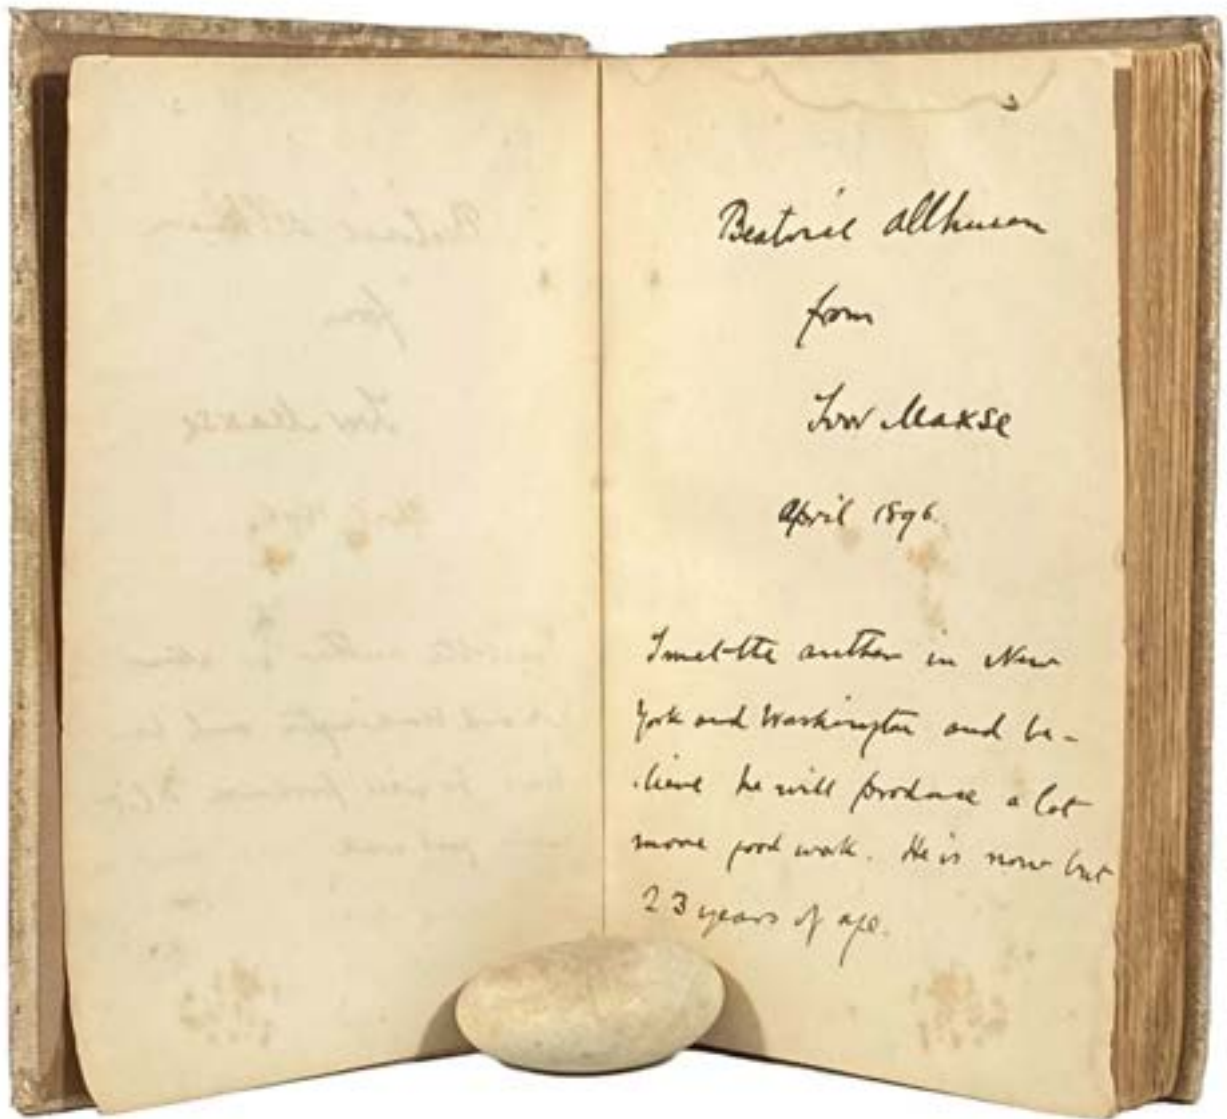 Beatrice Allhusen
from
Ivor Maxse
April 1896.
I met the author in New
York and Washington and be-
lieve he will produce a lot
more good work. He is now but
23 years of age.